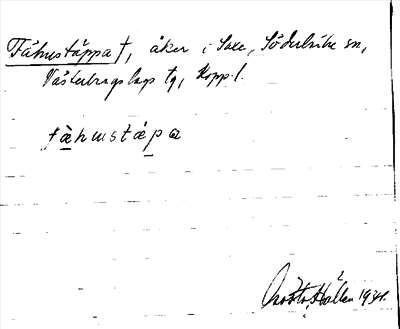 Fähustäppa †, åker i Saxe, Söderbärke sn,
Västerbergslags tg, Kopp.l.
fähustäpa
Hållen 1934.